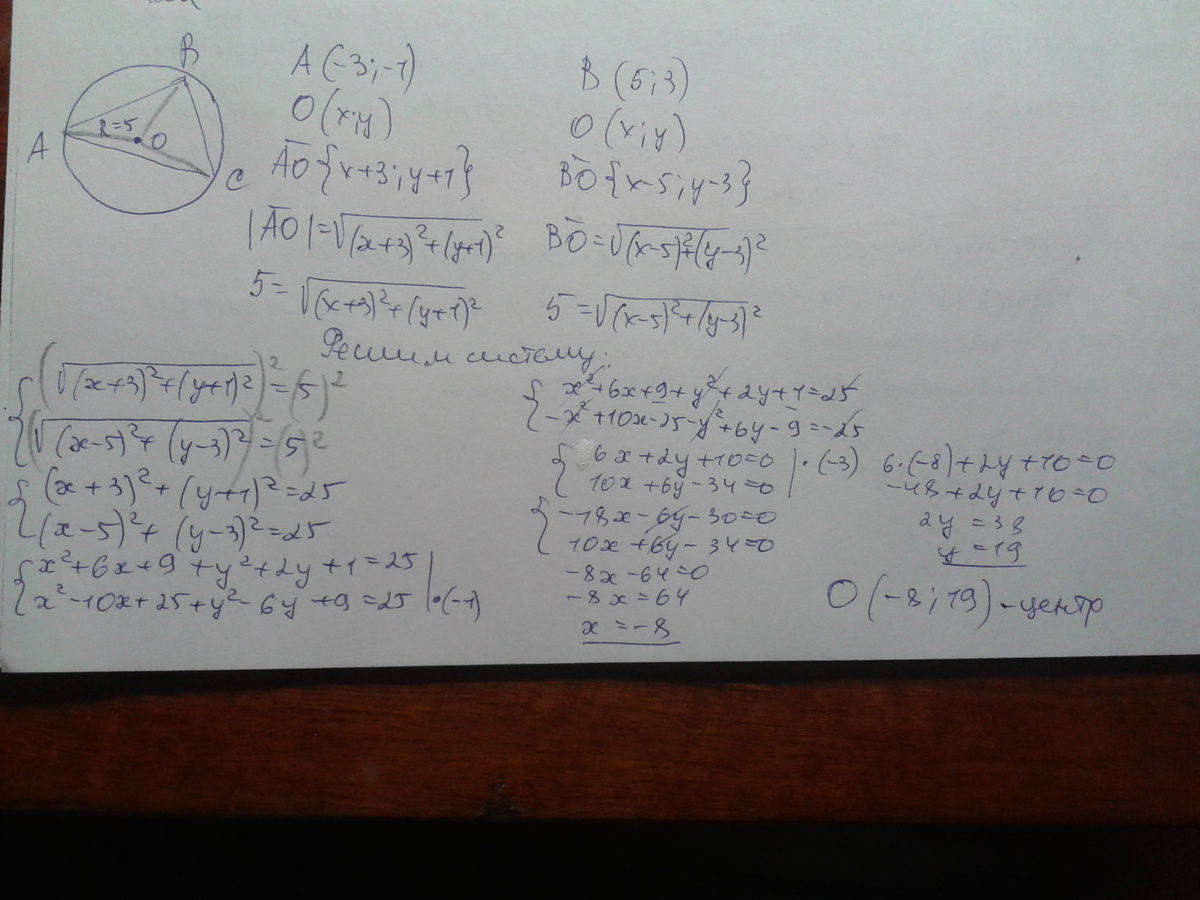 B
A
R=5
O
C
A (-3; -1)
O (x; y)
AO {x+3; y+1}
|AO| = √(x+3)²+(y+1)²
5 = √(x+3)²+(y+1)²
B (5; 3)
O (x; y)
BO {x-5; y-3}
BO = √(x-5)²+(y-3)²
5 = √(x-5)²+(y-3)²
Решим систему:
(√(x+3)²+(y+1)²)² = (5)²
(√(x-5)²+(y-3)²)² = (5)²
(x+3)²+(y+1)² = 25
(x-5)²+(y-3)² = 25
x²+6x+9+y²+2y+1=25
x²-10x+25+y²-6y+9=25 |·(-1)
x²+6x+9+y²+2y+1=25
-x²+10x-25-y²+6y-9=-25
6x+2y+10=0 |·(-3)
10x+6y-34=0
-18x-6y-30=0
10x+6y-34=0
-8x-64=0
-8x=64
x=-8
6·(-8)+2y+10=0
-48+2y+10=0
2y=38
y=19
O (-8; 19) - центр